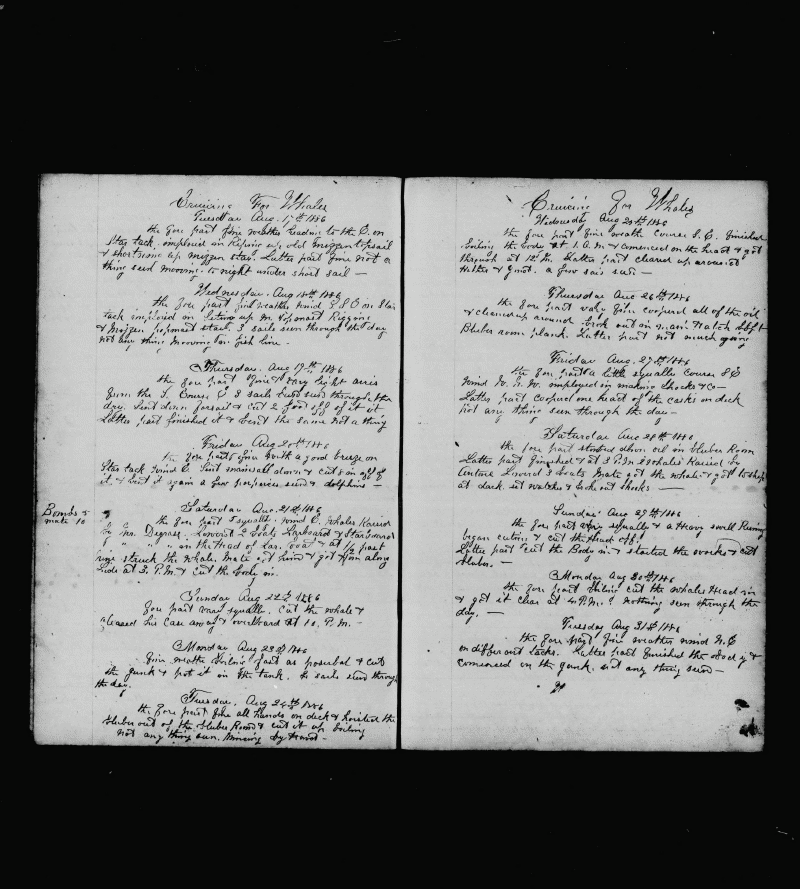 Cruicing For Whales
Tuesday Aug. 17th 1886
the fore part fine weather leading to the E. on
Star tack, imployed in Repairing up old mizzen topsail
& shortning up mizzen stay. Latter part fine not a
thing seed mooving to night under short sail —
Wednesday. Aug 18th 1886
the fore part fine weather wind S S O on Star
tack imployed in seting up M. topmast Rigging
& Mizzen topmast stack. 3 sails seen through the day
not any thing mooving or fish line. —
Thursday. Aug 19th 1886
the fore part fine & very light airs
from the S. Course E 8 sails seed through the
day. Sent down forsail & cut 2 foot off of it
Latter part finished it & bent the same not a thing
Friday Aug 20th 1886
the fore part fine with a good breeze on
Star tack wind E. Sent mainsail down & cut 8 in off of
it. & bent it again a few porpoises seed & dolphins —
Bombs 5
mate 10
Saturday Aug. 21st 1886
the fore part squally. wind E. Whales Raised
by Mr. Degrass. Lowered 2 boats Larboard & Starboard
in the Head of Lar. boat & at 1/2 past
nine struck the whale. Mate got him & got him along
side at 3. P.M. & cut the body in.
Sunday Aug 22d 1886
fore part very squally. cut the whale &
cleaned his case away & overboard at 10. P.M. —
Monday Aug 23d 1886
fine weather boiling fast as possible & cut
the junk & put it in the tank. sails seed through
the day.
Tuesday. Aug 24th 1886
the fore part fine all hands on deck & hoisted the
blubber out of the blubber Room & cut it up boiling
not any thing seen.
Cruicing for Whales
Wednesday Aug 25th 1886
the fore part fine weath course S.E. finished
boiling the body at 1 A.M & comenced on the head & got
through at 12th M. Latter part clearer up around at
a few sais seed —
Thursday Aug 26th 1886
the fore part very fine coopered all of the oil
& cleaned up around broke out in main Hatch & left
Bluber room plank. Latter part not much going
Friday Aug. 27th 1886
the fore part a little squally course S E
wind W. N. W. employed in making Chocks & co —
Latter part coopered one head of the casks on deck
not any thing seen through the day —
Saturday Aug 28th 1886
the fore part stowed down oil in bluber Room
Latter part finished & at 3 P.M 2 whales Raised by
Antone Lowered 3 boats Mate got the whale & got to ship
at dark set watches & lookout shocks —
Sunday Aug 29th 1886
the fore part very squally & a Heavy swell Runing
began cutting & cut the Head off.
Latter part cut the Body in. & started the works & cut
bluber. —
Monday Aug 30th 1886
the fore part boiling cut the whales Head in
& got it clear at 4 P.M. Nothing seen through the
day. —
Tuesday Aug 31st 1886
the fore part fine weather wind N. E
on different tacks. Latter part finished the body &
comenced on the junk. not any thing seed —